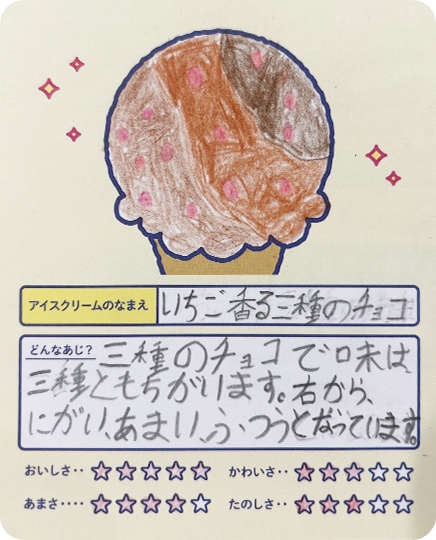 アイスクリームのなまえ
いちご香る三種のチョコ
どんなあじ?
三種のチョコで味は、
三種ともちがいます。右から、
にがい、あまい、ふつうとなっています。
おいしさ‥ ☆☆☆☆☆
かわいさ‥ ☆☆☆☆☆
あまさ‥‥ ☆☆☆☆☆
たのしさ‥ ☆☆☆☆☆